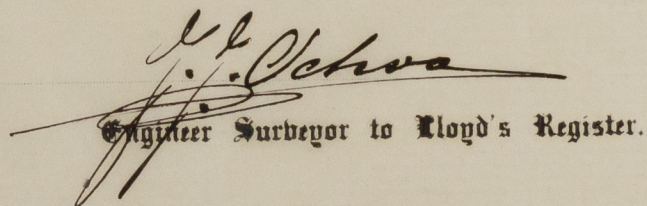 J. J. Ochoa
Engineer Surveyor to Lloyd's Register.